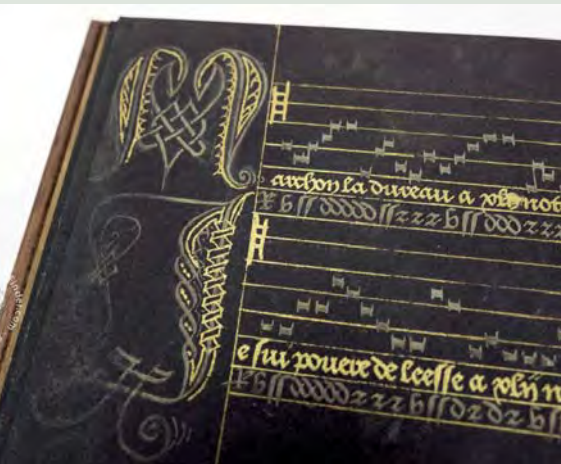 Marchon la dureau a not
R b ss ddddd ss rrr b ss ddd rrr
Je sui povere de leesse a xlij n
R b ss ddddd rrr b ss d r d r b ss